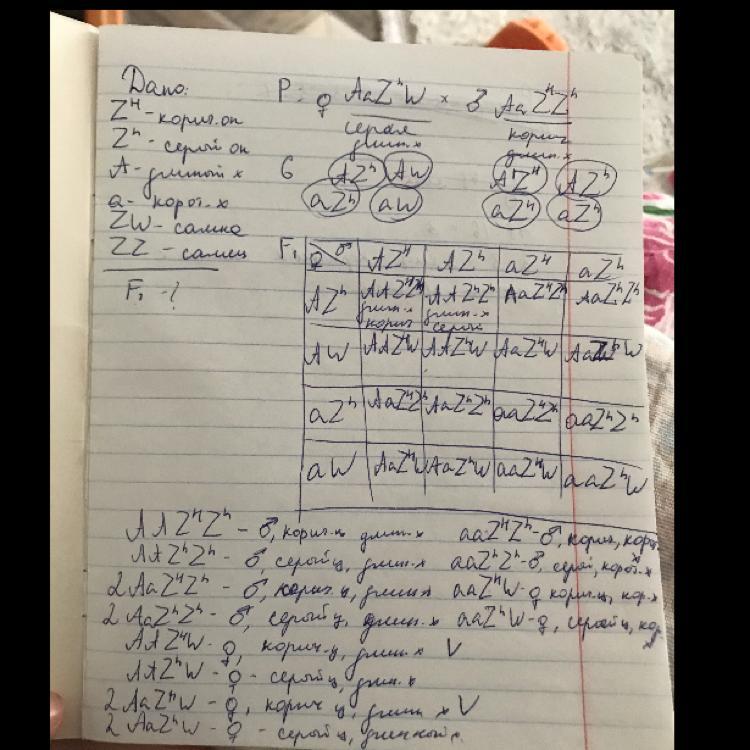 Дано:
Z^H - корич. оп
Z^h - серый оп
A - длинный х
a - корот. х
ZW - самка
ZZ - самец
F₁ - ?
P: ♀ AaZ^hW × ♂ AaZ^HZ^h
серая корич
длин. х длин. х
G AZ^h AW AZ^H AZ^h
aZ^h aW aZ^H aZ^h
F₁ ♀ ♂ AZ^H AZ^h aZ^H aZ^h
AZ^h AAZ^HZ^h AAZ^hZ^h AaZ^HZ^h AaZ^hZ^h
длин. х длин. х
корич серый
AW AAZ^HW AAZ^hW AaZ^HW AaZ^hW
aZ^h AaZ^HZ^h AaZ^hZ^h aaZ^HZ^h aaZ^hZ^h
aW AaZ^HW AaZ^hW aaZ^HW aaZ^hW
AAZ^HZ^h - ♂, корич. ц длин. х aaZ^HZ^h - ♂, корич, корот
AAZ^hZ^h - ♂, серый ц, длин. х aaZ^hZ^h - ♂, серый, корот. х
2 AaZ^HZ^h - ♂, корич. ц, длин х aaZ^HW - ♀ корич. ц, кор. х
2 AaZ^hZ^h - ♂, серый ц, длин. х aaZ^hW - ♀, серый ц, кор
х
AAZ^HW - ♀, корич. ц, длин. х V
AAZ^hW - ♀ - серый ц, длин. х
2 AaZ^HW - ♀, корич ц, длин х V
2 AaZ^hW - ♀ - серый ц,